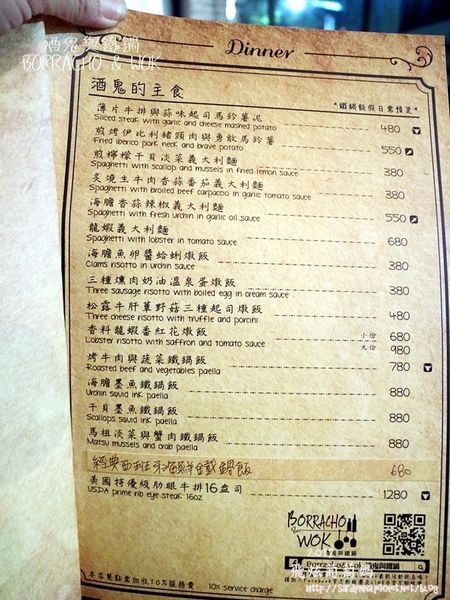 酒鬼與鐵鍋
BORRACHO & WOK
Dinner
酒鬼的主食
*鐵鍋飯假日需預定*
薄片牛排與蒜味起司馬玲薯泥
Sliced steak with garlic and cheese mashed potato 480
煎烤伊比利豬頸肉與勇敢馬玲薯
Fried iberico pork neck and brave potato 550
煎檸檬干貝淡菜義大利麵
Spaghetti with scallop and mussels in fried lemon sauce 380
炙燒生牛肉香蒜番茄義大利麵
Spaghetti with broiled beef carpaccio in garlic tomato sauce 380
海膽香蒜辣椒義大利麵
Spaghetti with fresh urchin in garlic oil sauce 550
龍蝦義大利麵
Spaghetti with lobster in tomato sauce 680
海膽魚卵醬蛤蜊燉飯
Clams risotto in urchin sauce 380
三種燻肉奶油溫泉蛋燉飯
Three sausage risotto with boiled egg in cream sauce 380
松露牛肝蕈野菇三種起司燉飯
Three cheese risotto with truffle and porcini 480
香料龍蝦番紅花燉飯 小份 680
Lobster risotto with saffron and tomato sauce 大份 980
烤牛肉與蔬菜鐵鍋飯
Roasted beef and vegetables paella 780
海膽墨魚鐵鍋飯
Urchin squid ink paella 880
干貝墨魚鐵鍋飯
Scallops squid ink paella 880
馬祖淡菜與蟹肉鐵鍋飯
Matsu mussels and crab paella 880
經典西班牙海鮮鐵鍋飯 680
美國特優級肋眼牛排16盎司
USDA prime rib eye steak 16oz 1280
BORRACHO
& WOK
酒鬼與鐵鍋
本店餐點需加收10%服務費 10% service charge